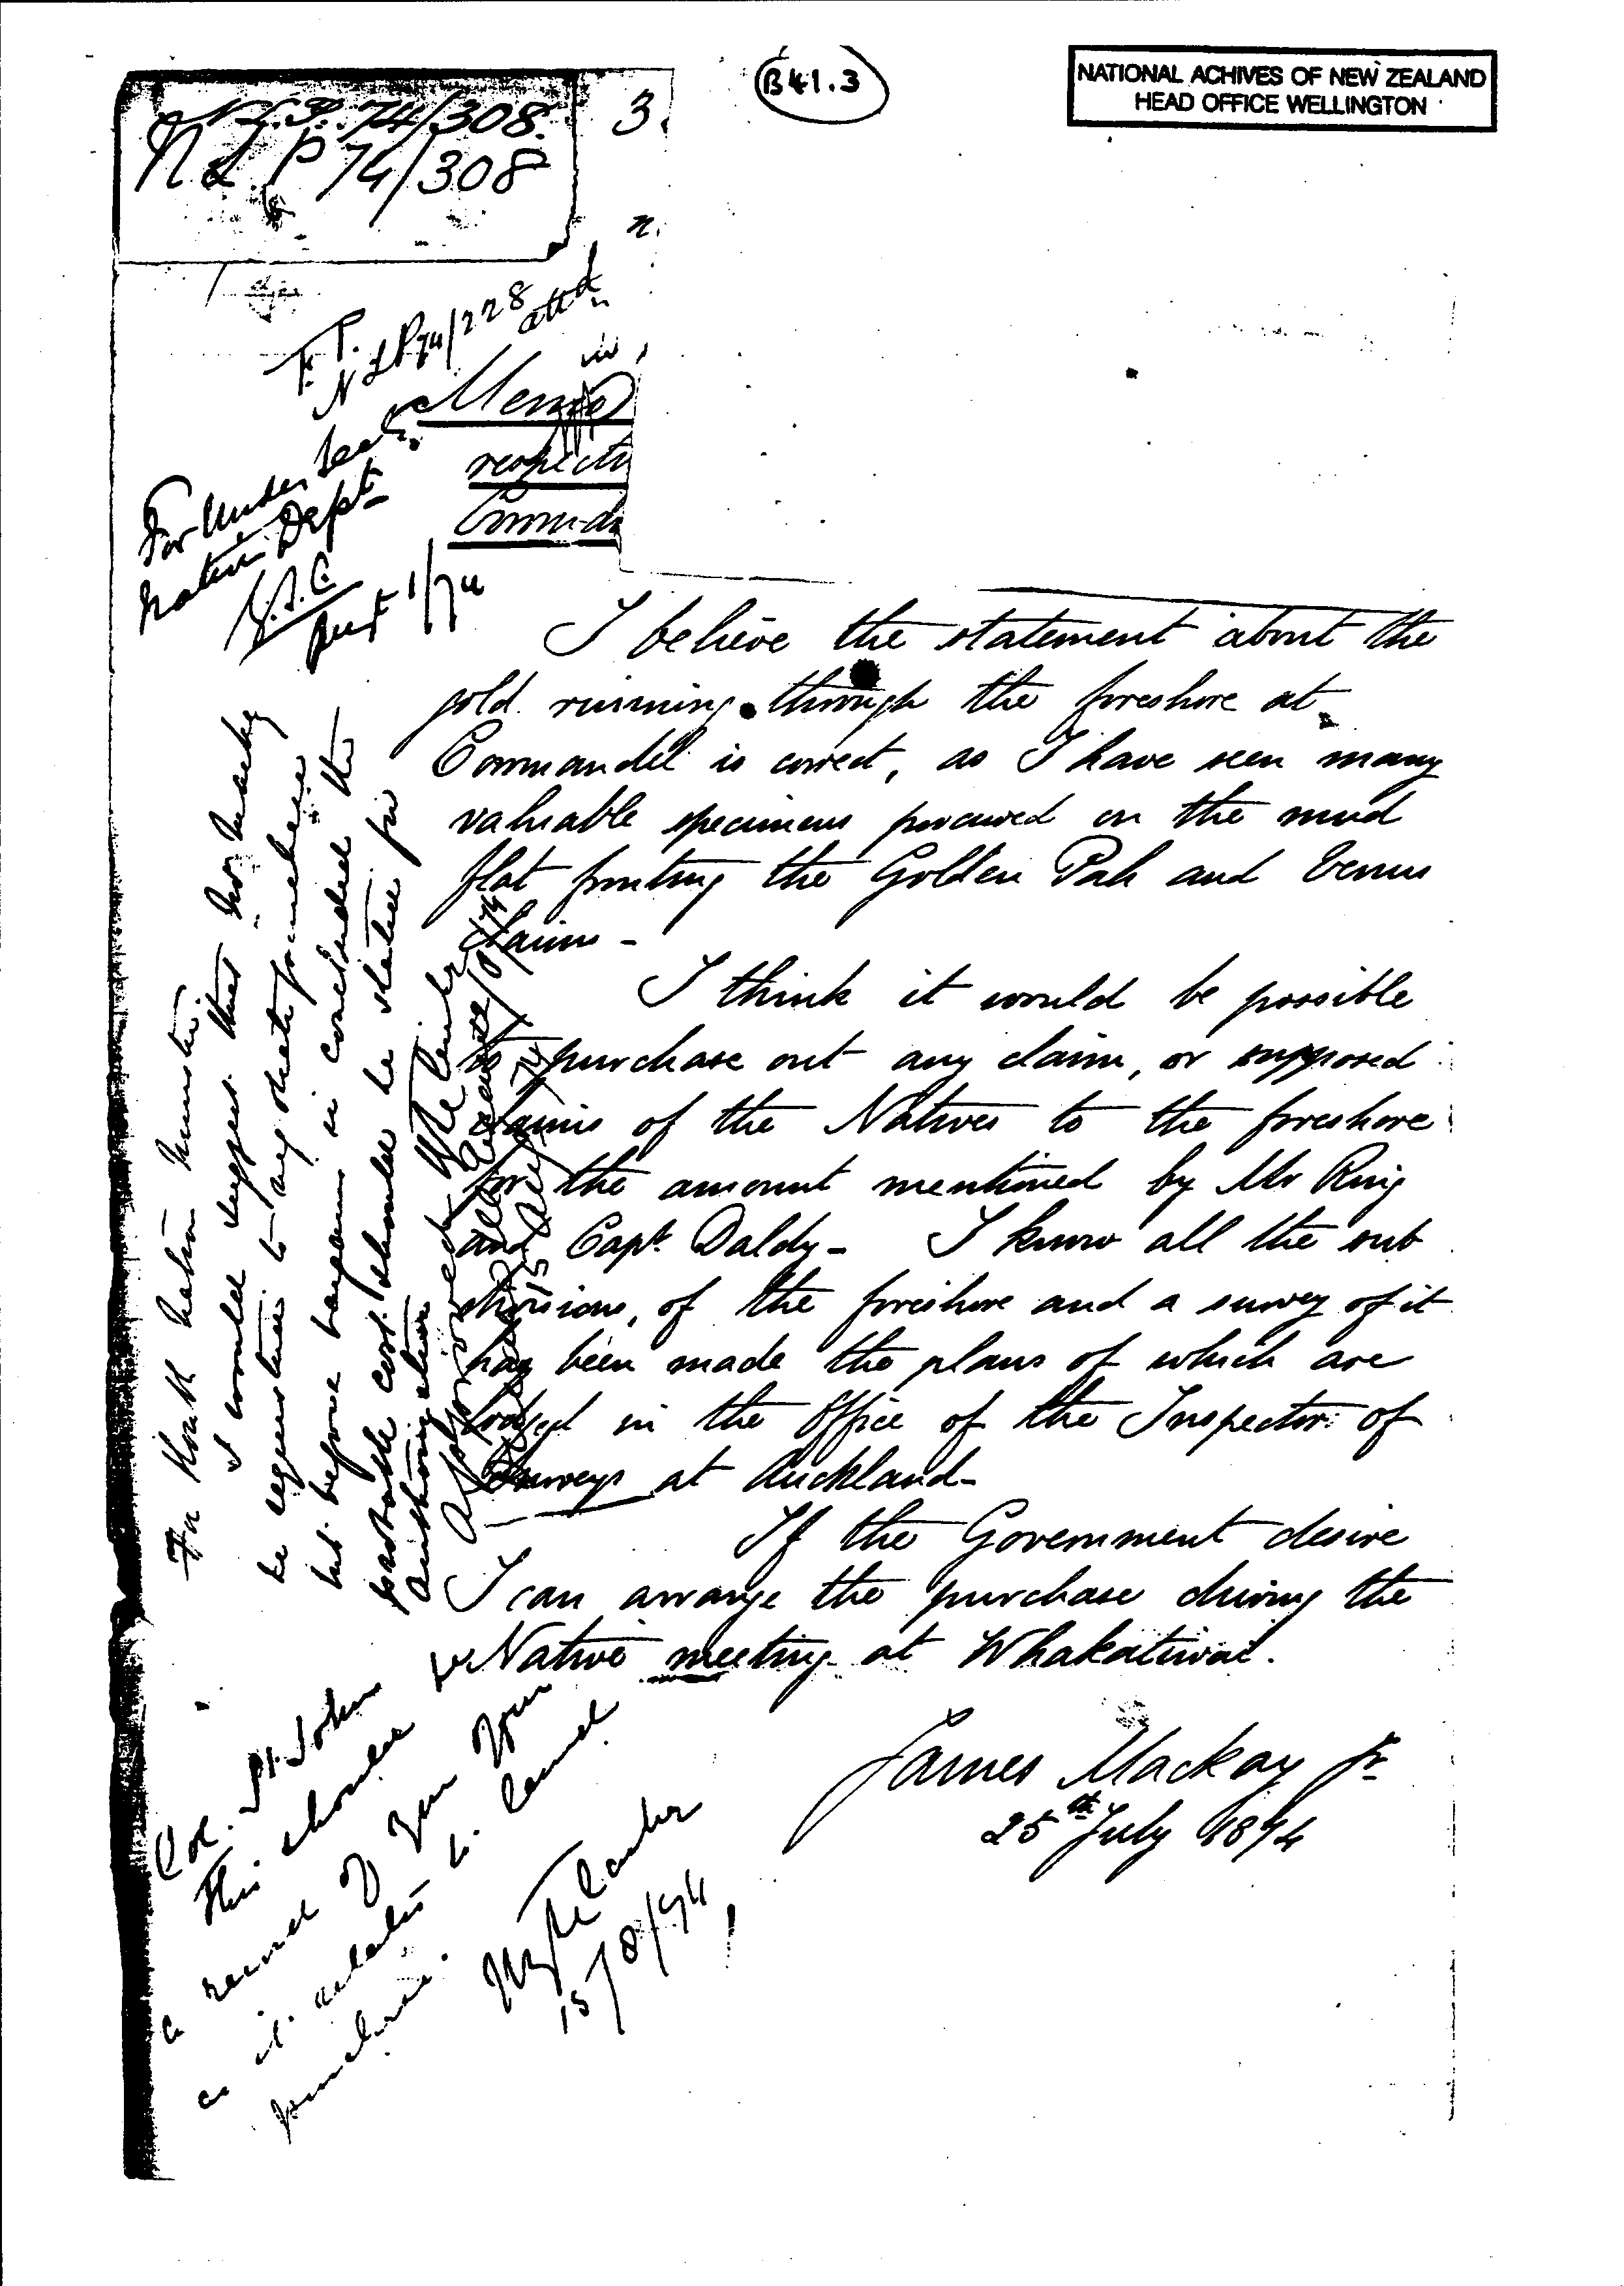 B41.3
NATIONAL ACHIVES OF NEW ZEALAND
HEAD OFFICE WELLINGTON
N.L.P. 74/308.
N L P 74/308
3.
n.
F. P.
N L P 74/228 attd
Memo
respectg
Coromdl
For Under Secy
Native Dept
1/74
I believe the statement about the
gold running through the foreshore at
Coromandel is correct, as I have seen many
valuable specimens procured on the mud
flat fronting the Golden Pah and Venus
claims -
I think it would be possible
to purchase out any claim, or supposed
claims of the Natives to the foreshore
for the amount mentioned by Mr Ring
and Capt. Daldy - I know all the sub
divisions, of the foreshore and a survey of it
has been made the plans of which are
lodged in the Office of the Inspector of
Surveys at Auckland -
If the Government desire
I can arrange the purchase during the
Native meeting at Whakatiwai.
James Mackay Jr.
25th July 1874
Fr Honble Native Minister
I would suggest that Mr Mackay
be requested to negotiate purchase
but before bargain is concluded the
probable cost should be stated for
authorization
Col. St. John
This should
a record of your
as it relates to land
purchase.
H H Clarke
15/8/74